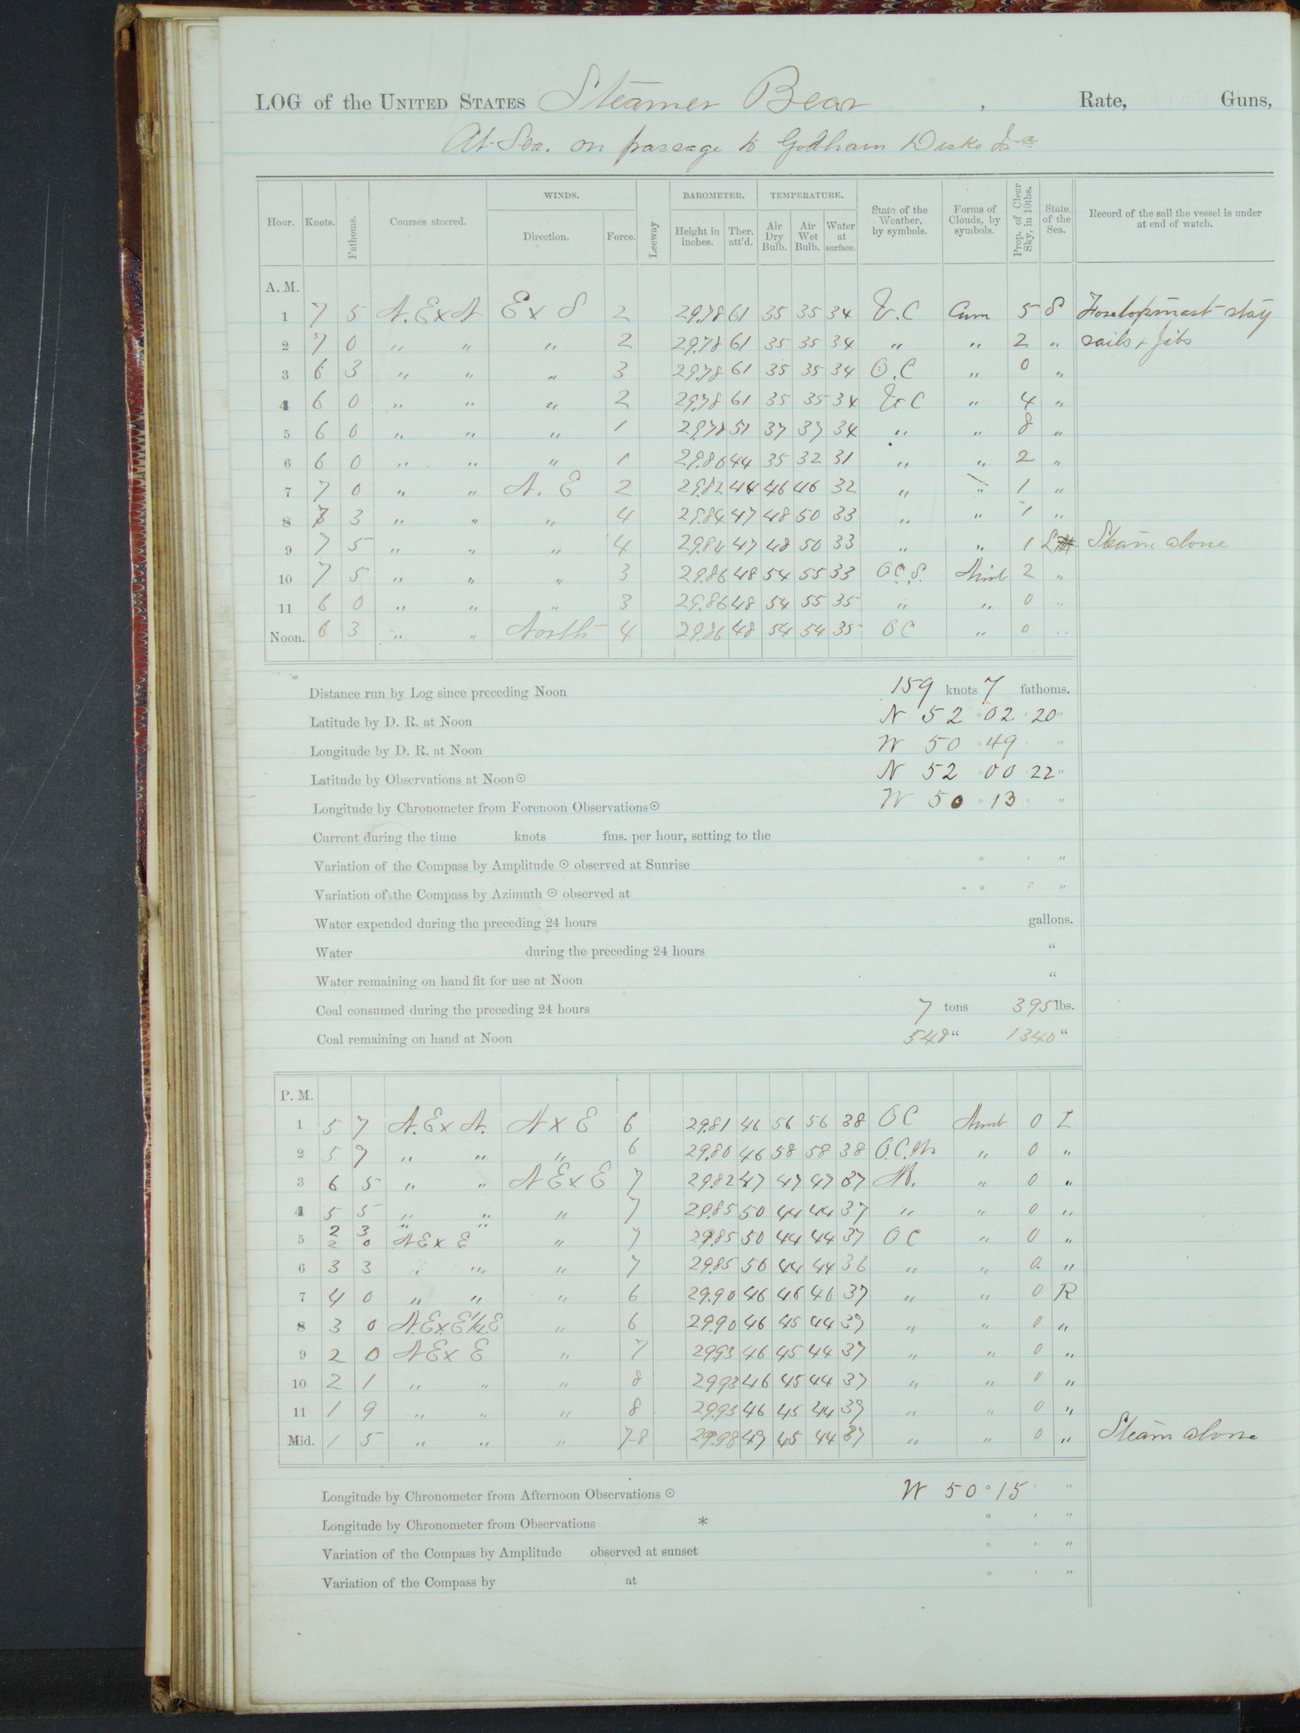 LOG of the UNITED STATES Steamer Bear , Rate, Guns,
At Sea. on passage to Godhaven Disko Isd
Hour. Knots. Fathoms. Courses steered. WINDS. Direction. Force. Leeway BAROMETER. Height in inches. Ther. att'd. TEMPERATURE. Air Dry Bulb. Air Wet Bulb. Water at surface. State of the Weather, by symbols. Forms of Clouds, by symbols. Prop. of Clear Sky, in 10ths. State of the Sea. Record of the sail the vessel is under at end of watch.
A. M.
1 7 5 N.ExN E x S 2 29.78 61 35 35 34 B.C Cum 5 S Foretopmast stay
2 7 0 " " " 2 29.78 61 35 35 34 " " 2 " sails + jibs
3 6 3 " " " 3 29.78 61 35 35 34 O.C " 0 "
4 6 0 " " " 2 29.78 61 35 35 34 B.C " 4 "
5 6 0 " " " 1 29.78 51 37 37 34 " " 8 "
6 6 0 " " " 1 29.80 44 35 32 31 " " 2 "
7 7 0 " " N. E 2 29.82 44 46 46 32 " " 1 "
8 7 3 " " " 4 29.84 47 48 50 33 " " 1 "
9 7 5 " " " 4 29.84 47 48 50 33 " " 1 L Steam alone
10 7 5 " " " 3 29.86 48 54 55 33 O.C.S. Nimb 2 "
11 6 0 " " " 3 29.86 48 54 55 35 " " 0 "
Noon. 6 3 " " North 4 29.86 48 54 54 35 OC " 0 "
Distance run by Log since preceding Noon 159 knots 7 fathoms.
Latitude by D. R. at Noon N 52 ° 02 ' 20 "
Longitude by D. R. at Noon W 50 ° 49 ' "
Latitude by Observations at Noon ☉ N 52 ° 00 ' 22 "
Longitude by Chronometer from Forenoon Observations ☉ W 50 ° 13 ' "
Current during the time knots fms. per hour, setting to the
Variation of the Compass by Amplitude ☉ observed at Sunrise ° ' "
Variation of the Compass by Azimuth ☉ observed at ° ' "
Water expended during the preceding 24 hours gallons.
Water during the preceding 24 hours "
Water remaining on hand fit for use at Noon "
Coal consumed during the preceding 24 hours 7 tons 395 lbs.
Coal remaining on hand at Noon 548 " 1340 "
P. M.
1 5 7 N.Ex N. N x E 6 29.81 46 56 56 38 OC Nimb 0 L
2 5 7 " " " 6 29.80 46 58 58 38 O.C.M. " 0 "
3 6 5 " " N E x E 7 29.82 47 47 47 37 M. " 0 "
4 5 5 " " " 7 29.85 50 44 44 37 " " 0 "
2 3 " "
5 2 0 NEx E " 7 29.85 50 44 44 37 OC " 0 "
6 3 3 " " " 7 29.85 50 44 44 36 " " 0 "
7 4 0 " " " 6 29.90 46 46 46 37 " " 0 R
8 3 0 N.ExE¼E " 6 29.90 46 45 44 37 " " 0 "
9 2 0 NEx E " 7 29.93 46 45 44 37 " " 0 "
10 2 1 " " " 8 29.93 46 45 44 37 " " 0 "
11 1 9 " " " 8 29.95 46 45 44 37 " " 0 "
Mid. 1 5 " " " 7-8 29.98 47 45 44 37 " " 0 " Steam alone
Longitude by Chronometer from Afternoon Observations ☉ W 50 ° 15 ' "
Longitude by Chronometer from Observations * ° ' "
Variation of the Compass by Amplitude observed at sunset ° ' "
Variation of the Compass by at ° ' "